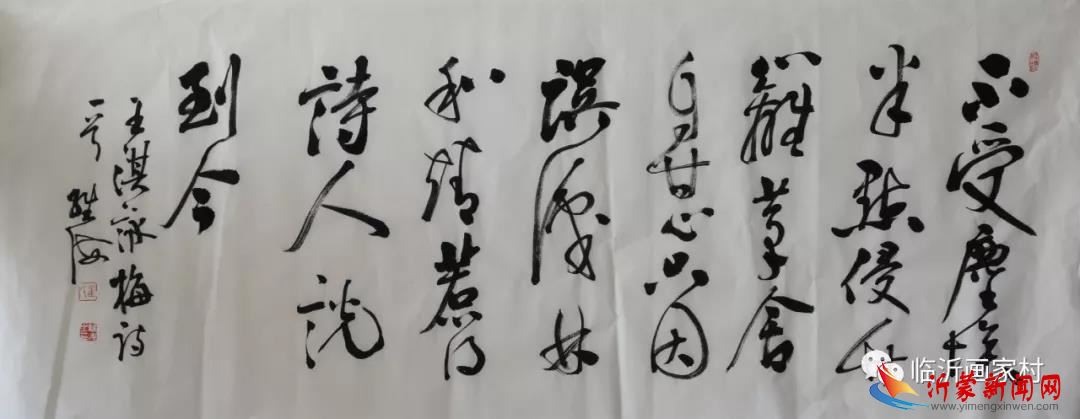 不受塵埃
半點侵竹
籬茅舍
自甘心只因
誤識林
和靖惹得
詩人說
到今
王淇詠梅詩
一首
临沂画家村
沂蒙新闻网
www.yimengxinwen.com